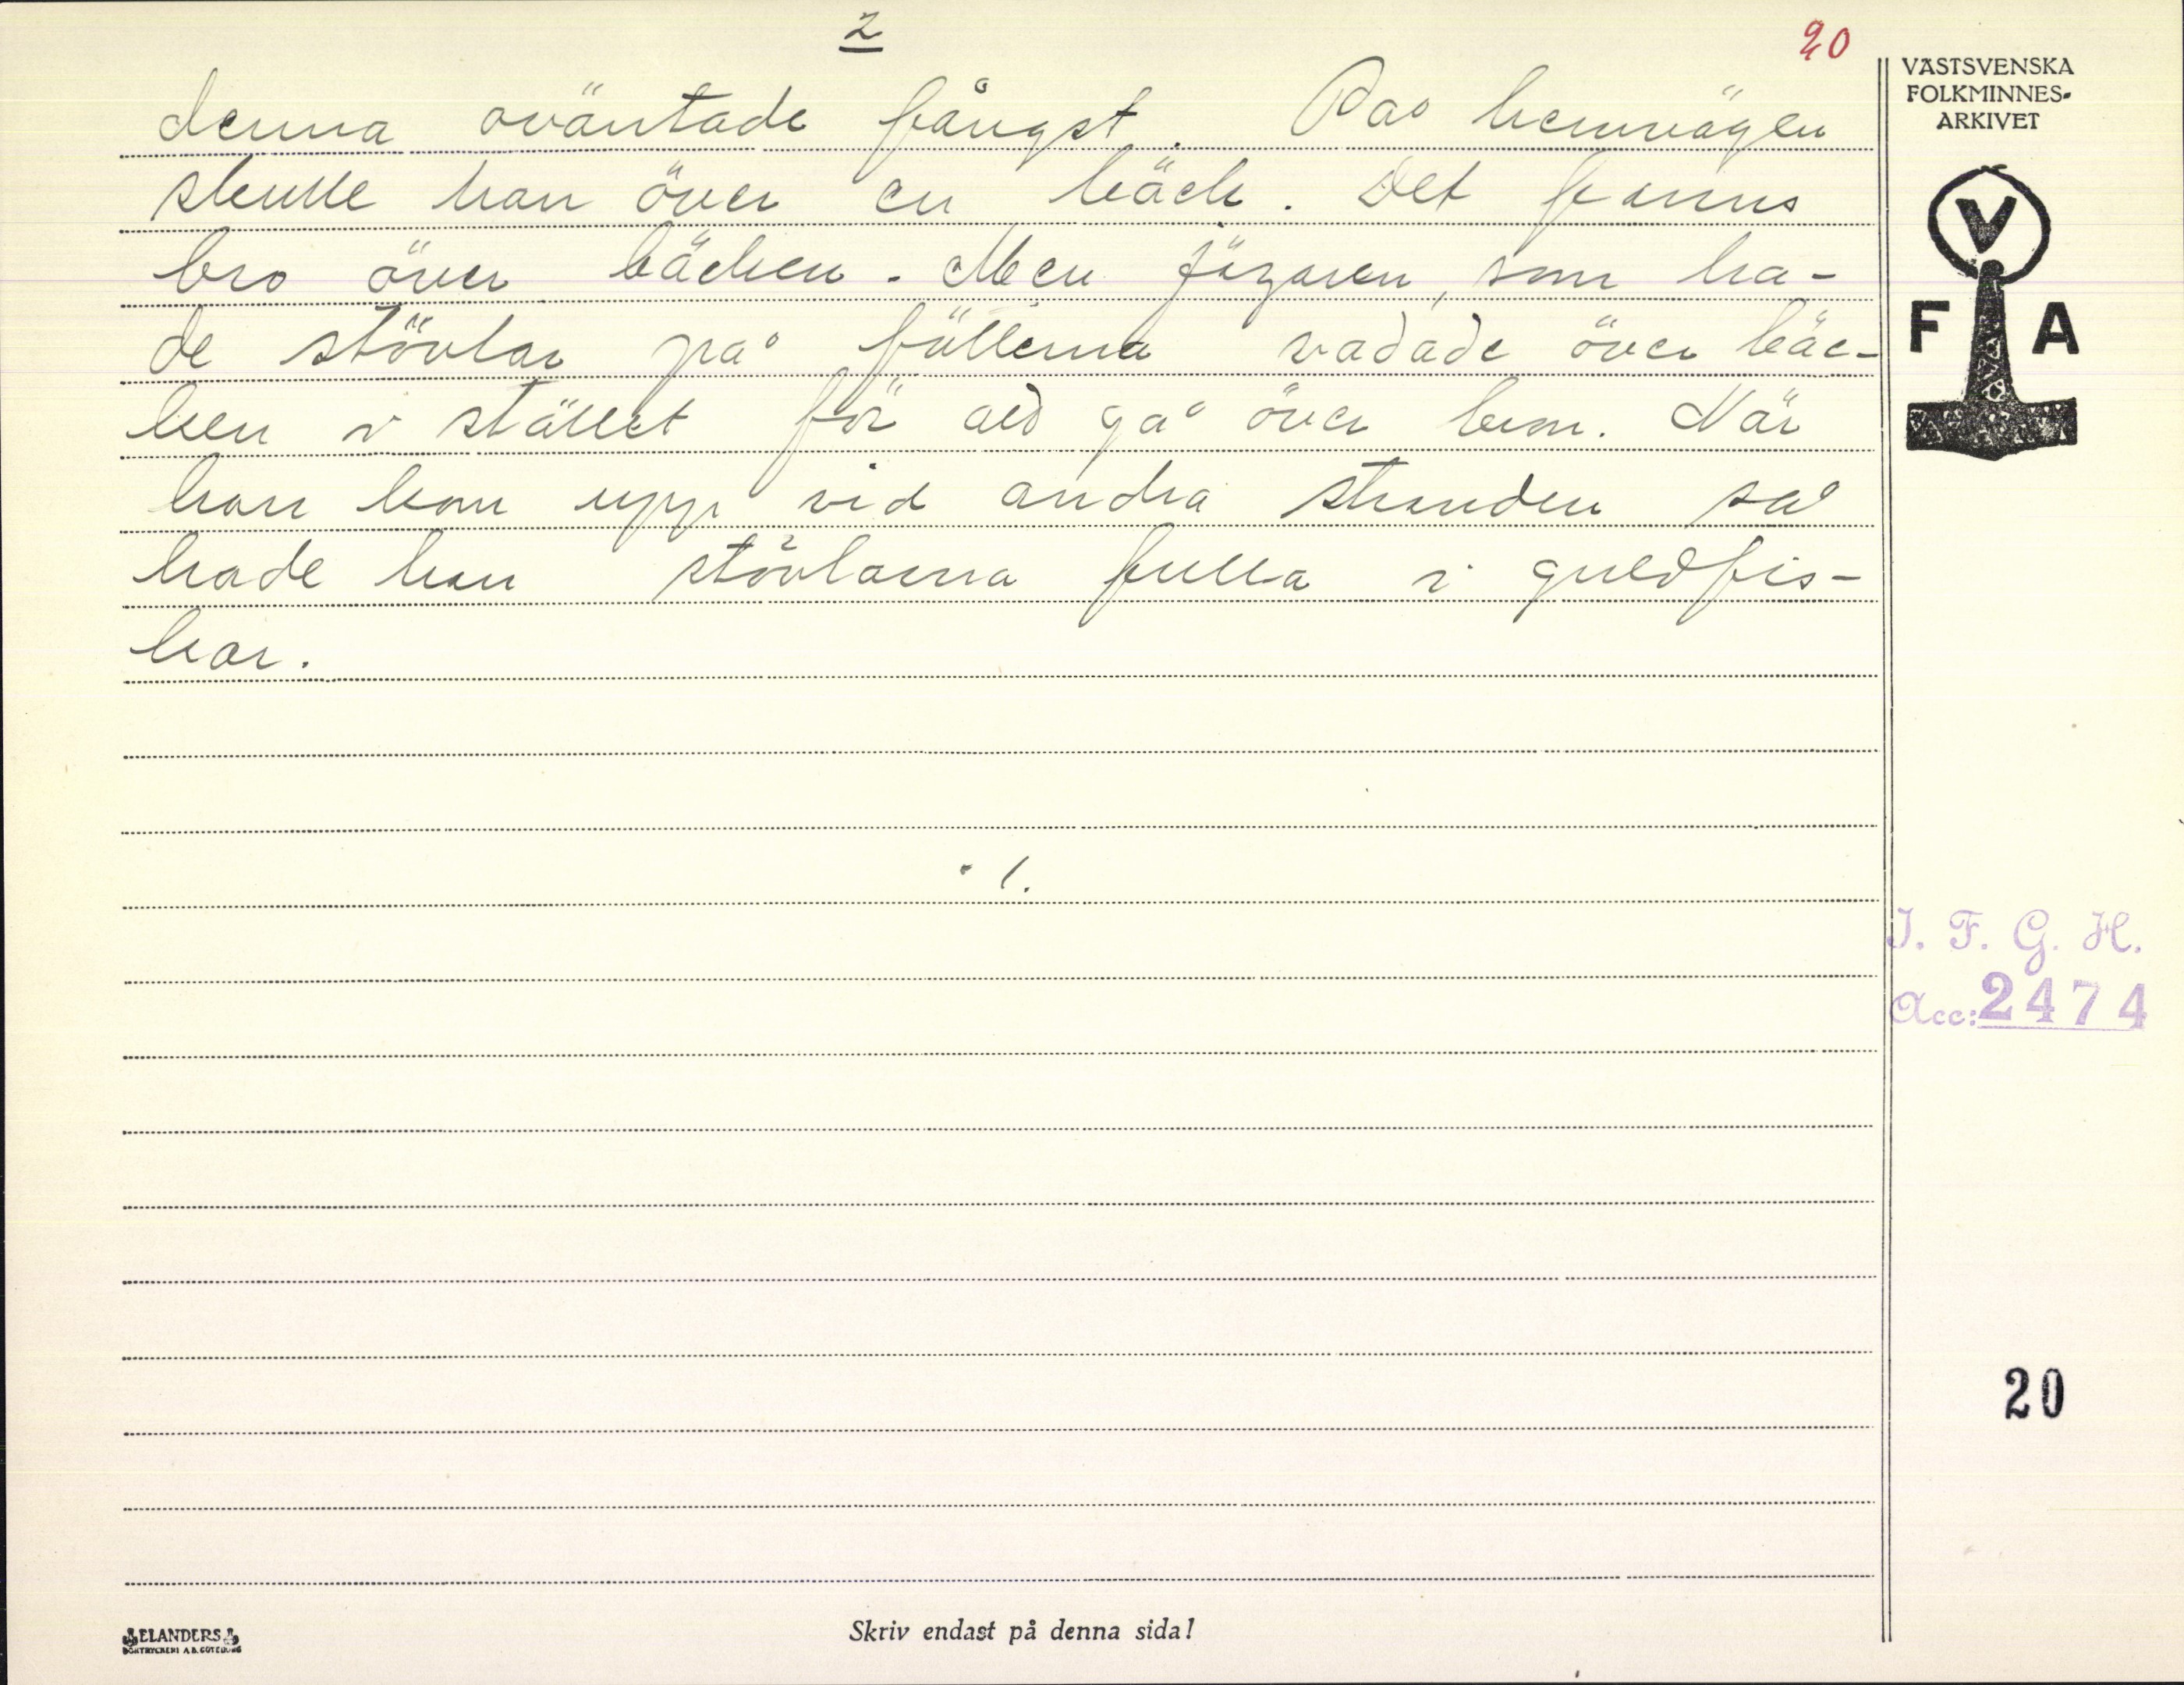 2
20
denna oväntade fångst. På hemvägen
skulle han över en bäck. Det fanns
bro över bäcken. Men jägaren, som ha-
de stövlar på föllerna vadade över bäc-
ken i stället för att gå över bron. När
han kom upp vid andra stranden så
hade han stövlarna fulla i guldfis-
kar.
1.
VÄSTSVENSKA
FOLKMINNES-
ARKIVET
V
F A
I. F. G. H.
Acc: 2474
20
ELANDERS
BOKTRYCKERI A.B. GÖTEBORG
Skriv endast på denna sida!